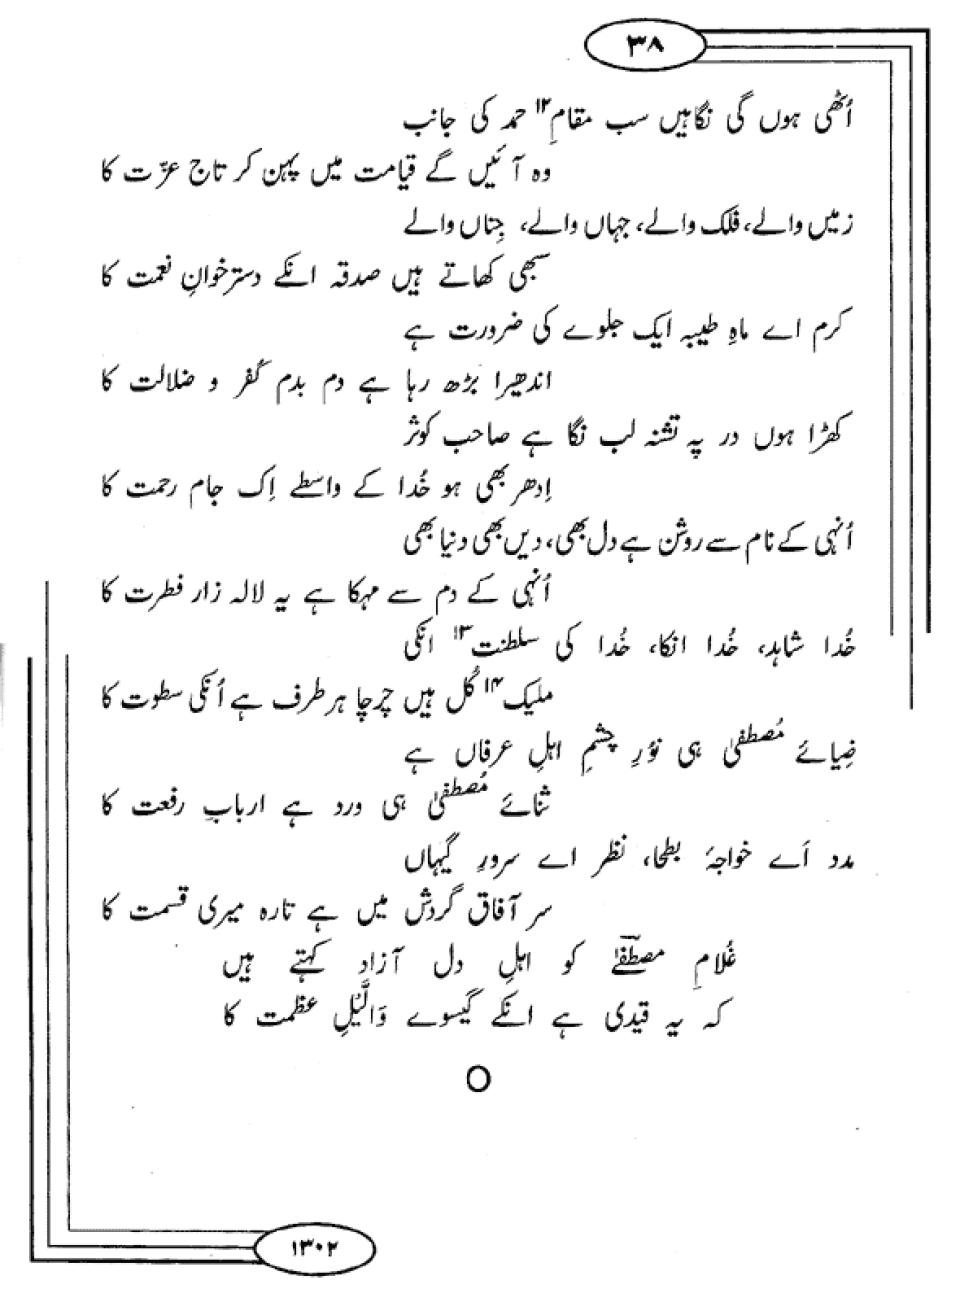 ۳۸
اُٹھی ہوں گی نگاہیں سب مقامِ۱۲ حمد کی جانب
وہ آئیں گے قیامت میں پہن کر تاج عزّت کا
زمیں والے، فلک والے، جہاں والے، جِناں والے
سبھی کھاتے ہیں صدقہ انکے دسترخوانِ نعمت کا
کرم اے ماہِ طیبہ ایک جلوے کی ضرورت ہے
اندھیرا بڑھ رہا ہے دم بدم کُفر و ضلالت کا
کھڑا ہوں در پہ تشنہ لب نگا ہے صاحب کوثر
اِدھر بھی ہو خُدا کے واسطے اِک جام رحمت کا
اُنہی کے نام سے روشن ہے دل بھی، دیں بھی دنیا بھی
اُنہی کے دم سے مہکا ہے یہ لالہ زار فطرت کا
خُدا شاہد، خُدا انکا، خُدا کی سلطنت۱۳ انکی
ملیک۱۴ کُل ہیں چرچا ہر طرف ہے اُنکی سطوت کا
ضِیائے مُصطفیٰ ہی نوُرِ چشمِ اہلِ عرفاں ہے
ثنائے مُصطفیٰ ہی ورد ہے اربابِ رفعت کا
مدد اَے خواجۂ بطحا، نظر اے سرورِ گیہاں
سر آفاق گردش میں ہے تارہ میری قسمت کا
غُلامِ مصطفےٰ کو اہلِ دل آزاد کہتے ہیں
کہ یہ قیدی ہے انکے گیسوے وَالَّیْلِ عظمت کا
۱۳۰۲